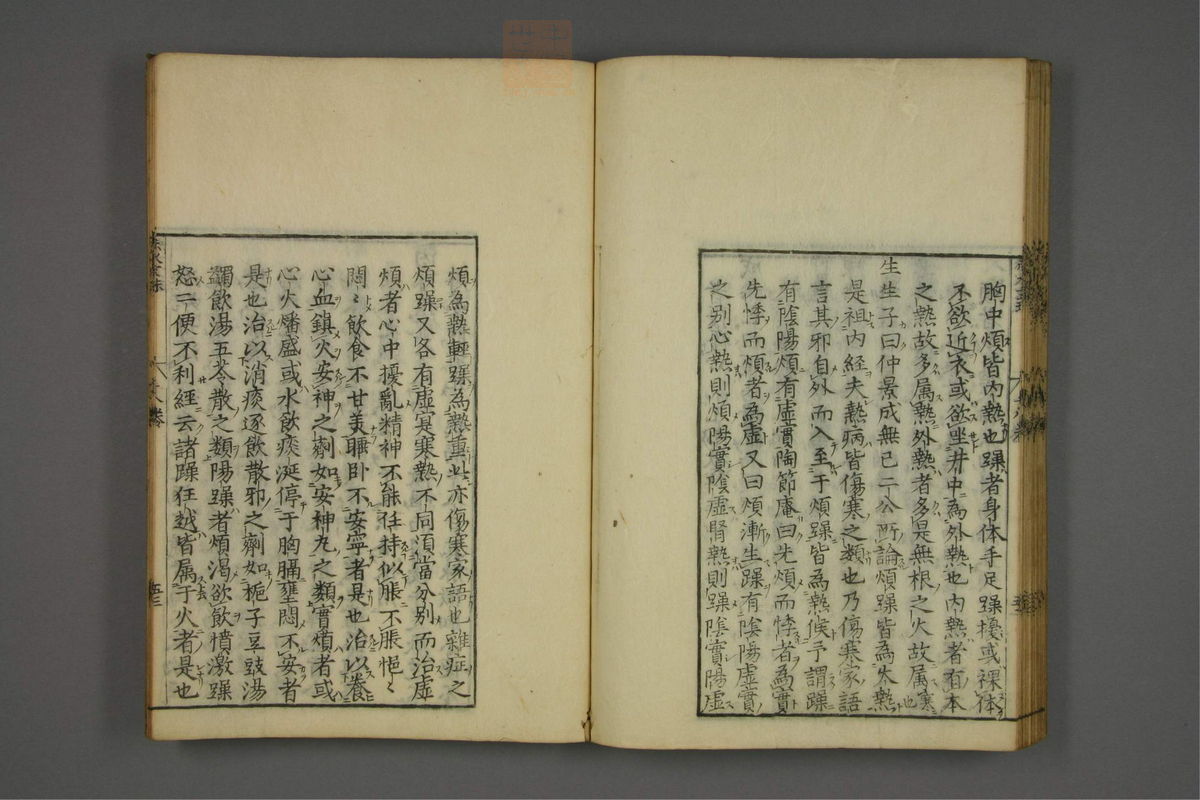 胸中煩皆内熱也躁者身体手足躁擾或裸体
不欲近衣或欲坐井中為外熱也内熱者有本
之熱故多属熱外熱者多是無根之火故属寒也
生生子曰仲景成無已二公所論煩躁皆為大熱
是祖内経夫熱病皆傷寒之類也乃傷寒家語
言其邪自外而入至于煩躁皆為熱候予謂躁
有陰陽煩有虚實陶節庵曰先煩而悸者為實
先悸而煩者為虚又曰煩漸生躁有陰陽虚實
之別心熱則煩陽實陰虚腎熱則躁陰實陽虚
煩為熱輕躁為熱重此亦傷寒家語也雜症之
煩躁又各有虚寔寒熱不同須當分別而治虚
煩者心中擾亂精神不能任持似脹不脹悒々
悶々飲食不甘美睡卧不安寧者是也治以養
心血鎮火安神之劑如安神丸之類實煩者或
心火燔盛或水飲痰涎停于胸膈壅悶不安者
是也治以消痰逐飲散邪之劑如梔子豆豉湯
蠲飲湯五苓散之類陽躁者煩渇欲飲憤激躁
怒二便不利經云諸躁狂越皆属于火者是也